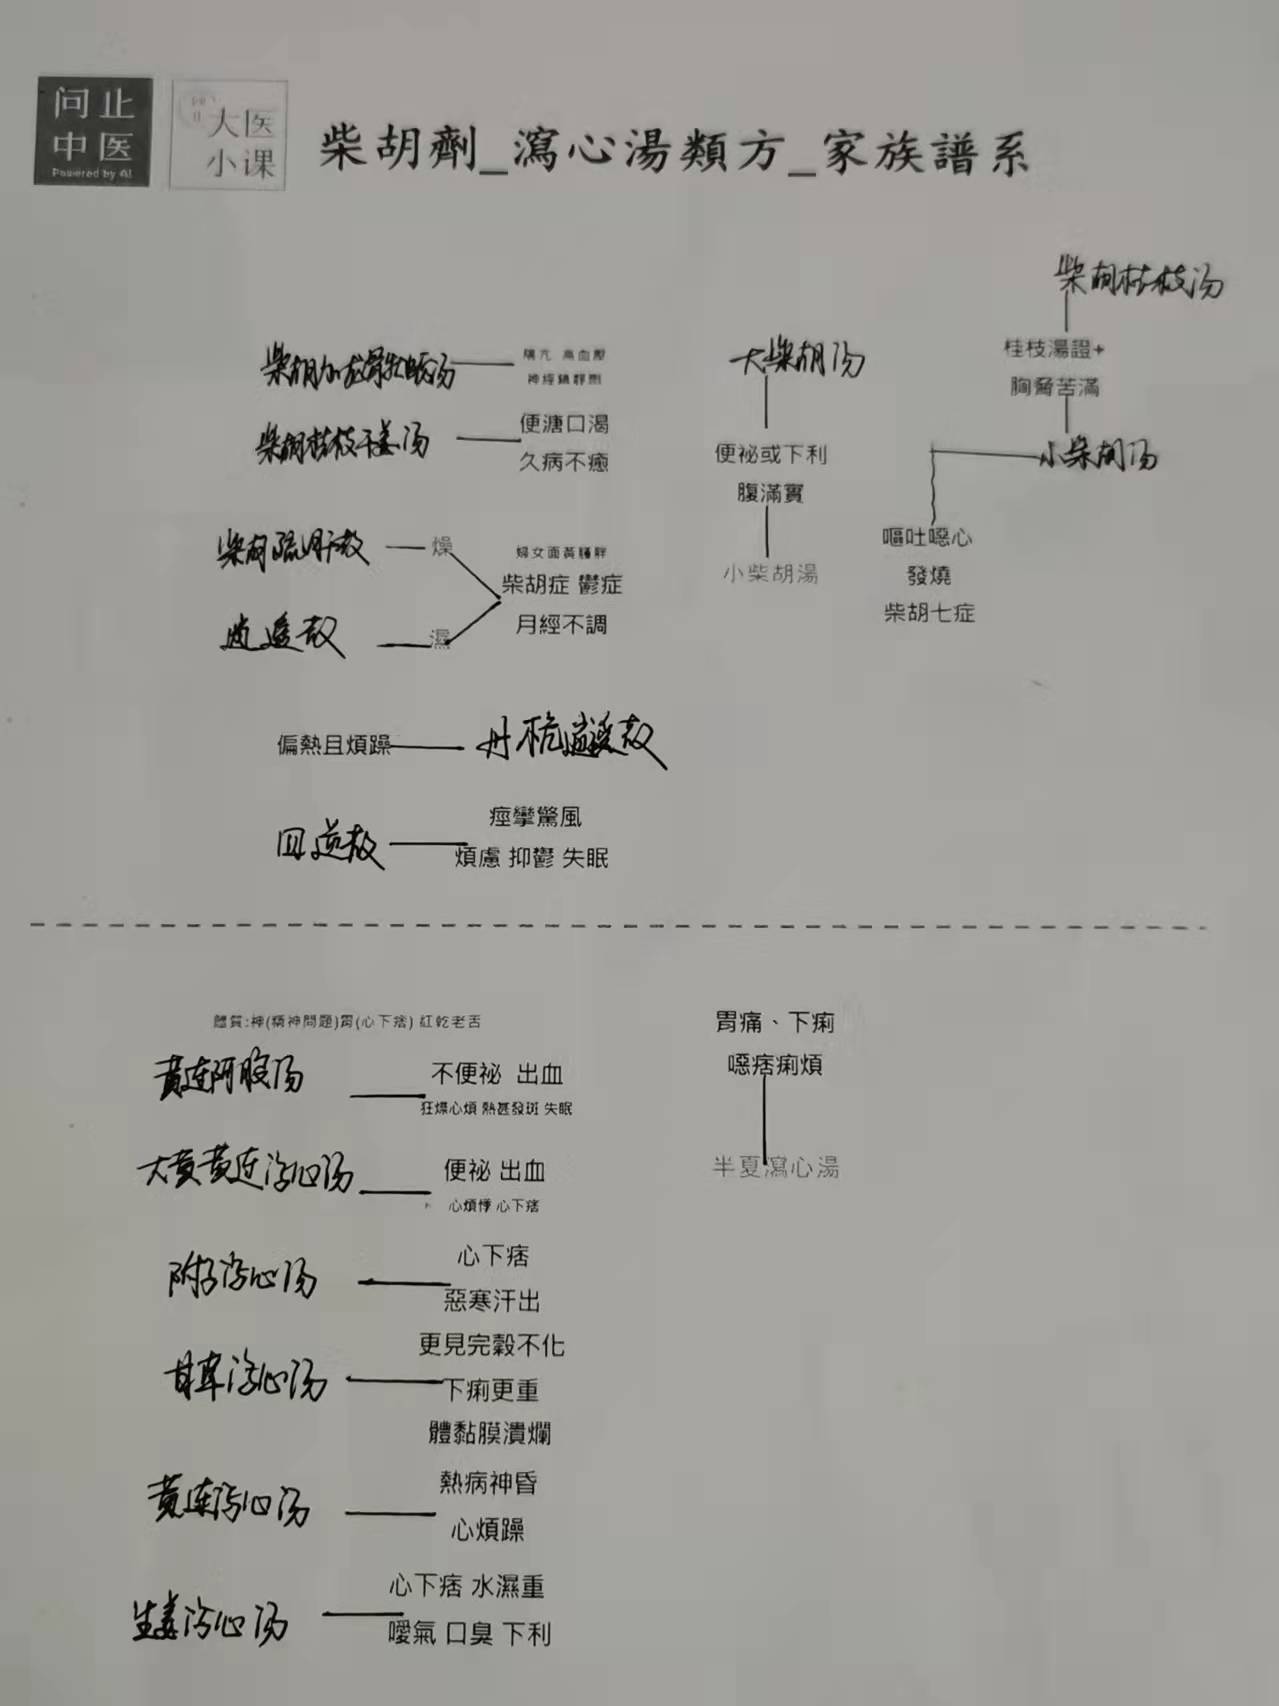 问止
中医
Powered by AI
大医
小课
柴胡劑_瀉心湯類方_家族譜系
柴胡桂枝汤
桂枝湯證+
胸脅苦滿
小柴胡汤
嘔吐噁心
發燒
柴胡七症
大柴胡汤
便祕或下利
腹滿實
小柴胡湯
柴胡加龙骨牡蛎汤
陽亢 高血壓
神經鎮靜劑
柴胡桂枝干姜汤
便溏口渴
久病不癒
柴胡疏肝散
燥
逍遥散
濕
婦女面黃腫胖
柴胡症 鬱症
月經不調
偏熱且煩躁
丹栀逍遥散
四逆散
痙攣驚風
煩慮 抑鬱 失眠
體質:神(精神問題)胃(心下痞) 紅乾老舌
黄连阿胶汤
不便祕 出血
狂燥心煩 熱甚發斑 失眠
大黄黄连泻心汤
便祕 出血
心煩悸 心下痞
附子泻心汤
心下痞
惡寒汗出
甘草泻心汤
更見完穀不化
下痢更重
體黏膜潰爛
黄连泻心汤
熱病神昏
心煩躁
生姜泻心汤
心下痞 水濕重
噯氣 口臭 下利
胃痛、下痢
噁痞痢煩
半夏瀉心湯